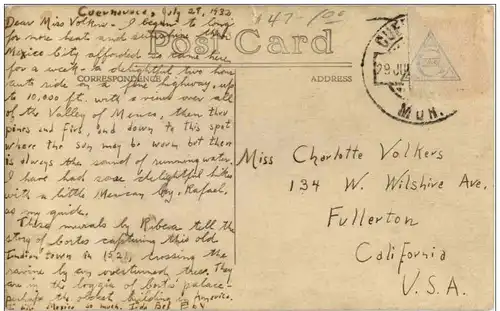 Cuernavaca, July 28, 1932
47- 1.00
Dear Miss Volkers - I began to long
for more heat and sunshine than
Mexico City afforded so came here
for a week - a delightful two hour
auto ride on a fine highway, up
to 10,000 ft. with a view over all
of the Valley of Mexico, then thru
pines and firs, and down to this spot
where the sun may be warm but there
is always the sound of running water.
I have had some delightful hikes
with a little Mexican boy, Rafael,
as my guide.
These murals by Ribera tell the
story of Cortes capturing this old
Indian town in 1521, crossing the
ravine by an overturned tree. They
are in the loggia of Cortes' palace -
perhaps the oldest building in America.
Mexico so much.
Post Card
CORRESPONDENCE
ADDRESS
CUER
29 JUL
MOR.
Miss Charlotte Volkers
134 W. Wilshire Ave.
Fullerton
California
U.S.A.